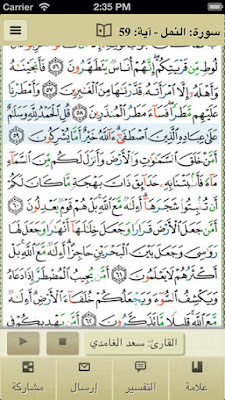 Carrier 2:35 PM
سورة: النمل - آية: 59
لُوطٍ مِّن قَرْيَتِكُمْ إِنَّهُمْ أُنَاسٌ يَتَطَهَّرُونَ ٥٦ فَأَنجَيْنَٰهُ
وَأَهْلَهُۥٓ إِلَّا ٱمْرَأَتَهُۥ قَدَّرْنَٰهَا مِنَ ٱلْغَٰبِرِينَ ٥٧ وَأَمْطَرْنَا
عَلَيْهِم مَّطَرًا فَسَآءَ مَطَرُ ٱلْمُنذَرِينَ ٥٨ قُلِ ٱلْحَمْدُ لِلَّهِ وَسَلَٰمٌ
عَلَىٰ عِبَادِهِ ٱلَّذِينَ ٱصْطَفَىٰٓ ءَآللَّهُ خَيْرٌ أَمَّا يُشْرِكُونَ ٥٩
أَمَّنْ خَلَقَ ٱلسَّمَٰوَٰتِ وَٱلْأَرْضَ وَأَنزَلَ لَكُم مِّنَ ٱلسَّمَآءِ
مَآءً فَأَنۢبَتْنَا بِهِۦ حَدَآئِقَ ذَاتَ بَهْجَةٍ مَّا كَانَ لَكُمْ
أَن تُنۢبِتُوا۟ شَجَرَهَآ أَءِلَٰهٌ مَّعَ ٱللَّهِ بَلْ هُمْ قَوْمٌ يَعْدِلُونَ ٦٠
أَمَّن جَعَلَ ٱلْأَرْضَ قَرَارًا وَجَعَلَ خِلَٰلَهَآ أَنْهَٰرًا وَجَعَلَ لَهَا
رَوَٰسِىَ وَجَعَلَ بَيْنَ ٱلْبَحْرَيْنِ حَاجِزًا أَءِلَٰهٌ مَّعَ ٱللَّهِ بَلْ
أَكْثَرُهُمْ لَا يَعْلَمُونَ ٦١ أَمَّن يُجِيبُ ٱلْمُضْطَرَّ إِذَا دَعَاهُ
وَيَكْشِفُ ٱلسُّوٓءَ وَيَجْعَلُكُمْ خُلَفَآءَ ٱلْأَرْضِ أَءِلَٰهٌ
مَّعَ ٱللَّهِ قَلِيلًا مَّا تَذَكَّرُونَ ٦٢ أَمَّن يَهْدِيكُمْ فِى
القارئ: سعد الغامدي
علامة
التفسير
إرسال
مشاركة